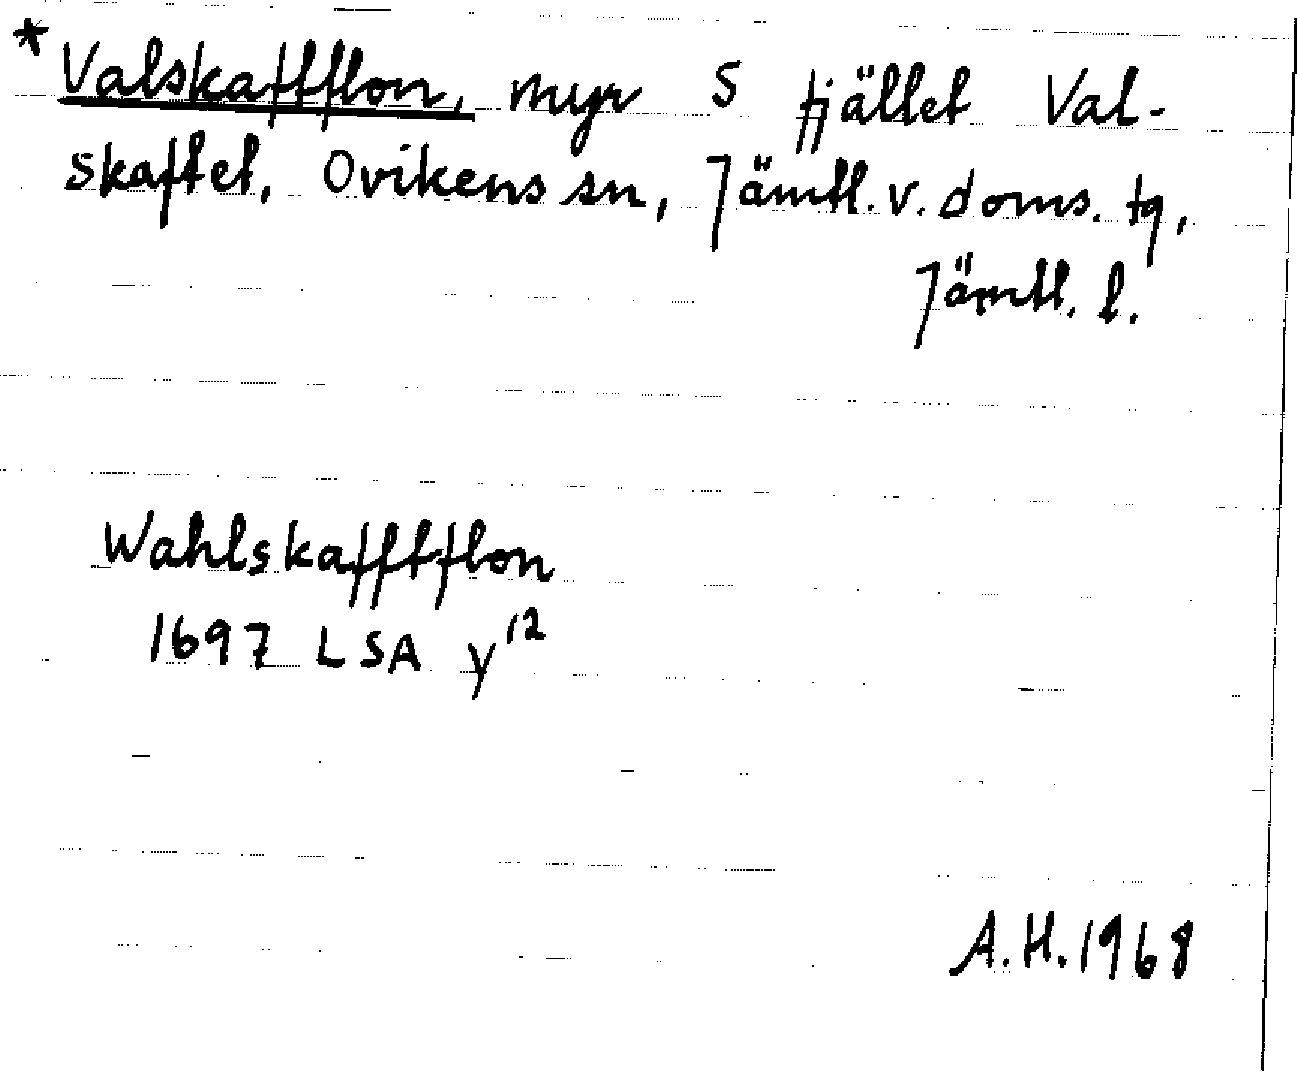 * Valskaftflon, myr S fjället Val-
skaftet, Ovikens sn, Jämtl. v. doms. tg,
Jämtl. l.
Wahlskafftflon
1697 LSA y12
A.H. 1968